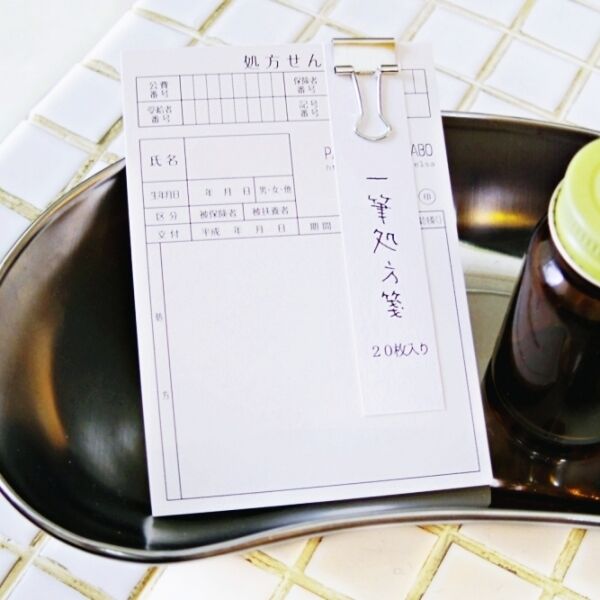 処方せん
公費番号
保険者番号
受給者番号
記号番号
氏名
生年月日 年 月 日 男・女・他
区分 被保険者 被扶養者
交付 平成 年 月 日 期間
処方
ABO
印
一筆処方箋
20枚入り